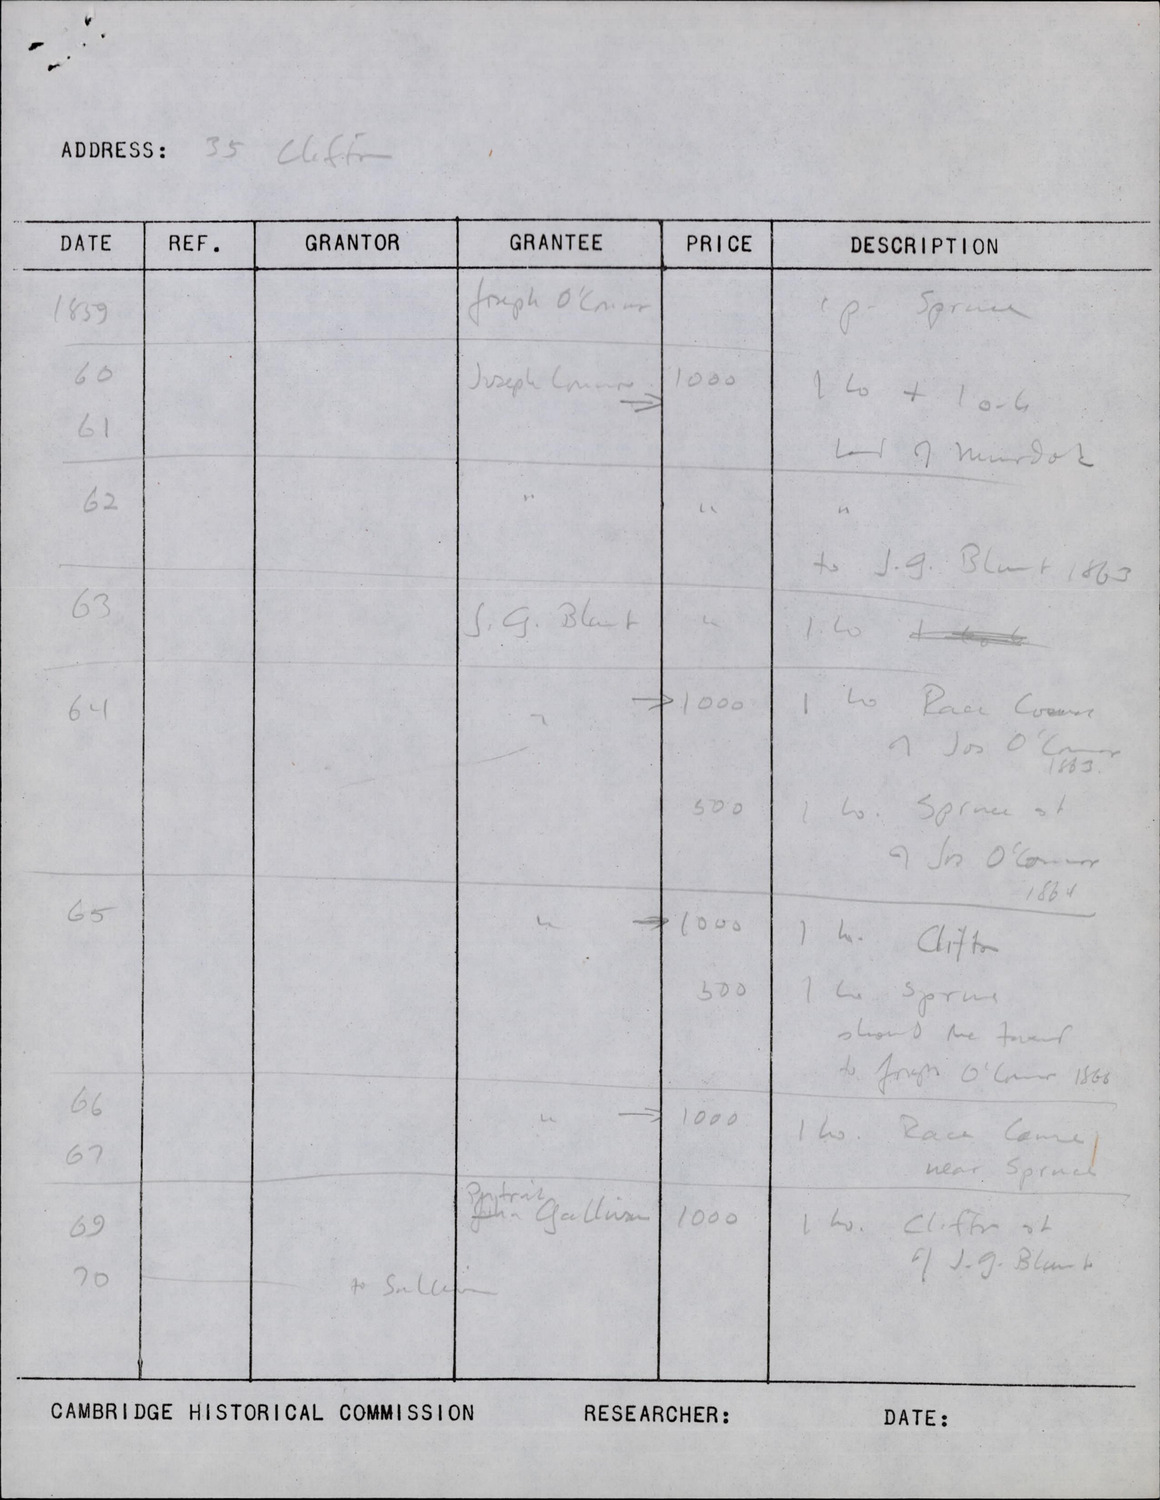 ADDRESS: 35 Clifton
DATE REF. GRANTOR GRANTEE PRICE DESCRIPTION
1859 Joseph O'Connor 1 p- Spruce
60 Joseph Connors 1000 1 ho + 1
61 land of Murdock
62 " " "
to J.G. Blunt 1863
63 J. G. Blunt " 1 ho
64 " → 1000 1 ho Race Course
of Jos O'Connor
1863.
500 1 ho. Spruce st
of Jos O'Connor
1864
65 " → 1000 1 ho. Clifton
500 1 ho Spruce
should be taxed
to Joseph O'Connor 1866
66 " → 1000 1 ho. Race Course
67 near Spruce
Patrick
69 John Gallivan 1000 1 ho. Clifton st
of J.G. Blunt
70 to Sullivan
CAMBRIDGE HISTORICAL COMMISSION RESEARCHER: DATE: